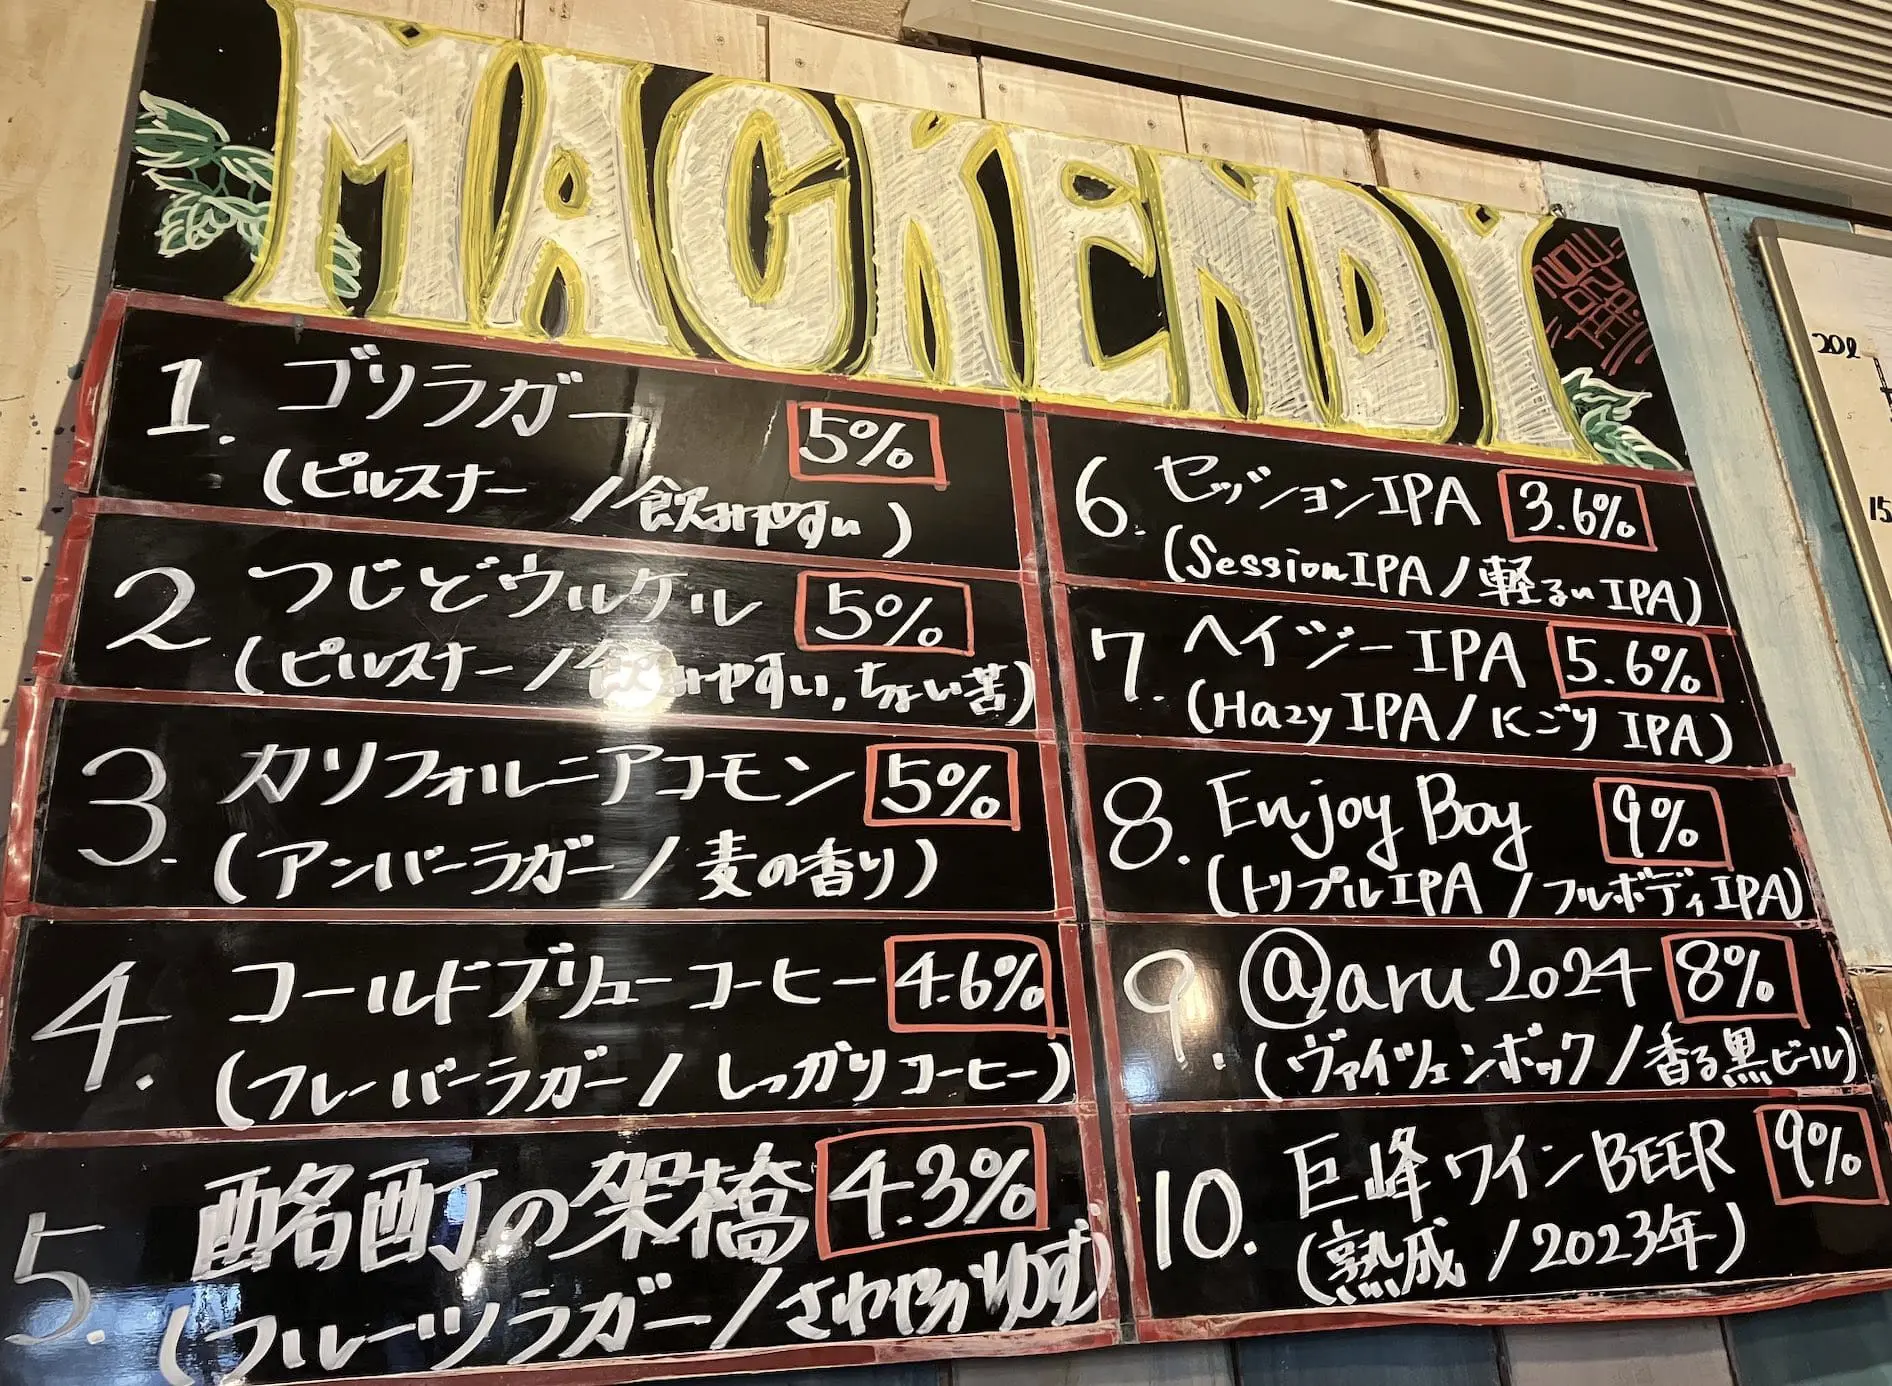 MACKENDY
NOW!
ON
TAP!
1. ゴリラガー 5%
(ピルスナー/飲みやすい)
2. つじどウルケル 5%
(ピルスナー/飲みやすい,ちょい苦)
3. カリフォルニアコモン 5%
(アンバーラガー/麦の香り)
4. コールドブリューコーヒー 4.6%
(フレーバーラガー/しっかりコーヒー)
5. 酩酊の架橋 4.3%
(フルーツラガー/さわやかゆず)
6. セッションIPA 3.6%
(Session IPA/軽るいIPA)
7. ヘイジーIPA 5.6%
(Hazy IPA/にごりIPA)
8. Enjoy Boy 9%
(トリプルIPA/フルボディIPA)
9. @aru 2024 8%
(ヴァイツェンボック/香る黒ビール)
10. 巨峰ワインBEER 9%
(熟成/2023年)
20ℓ
15